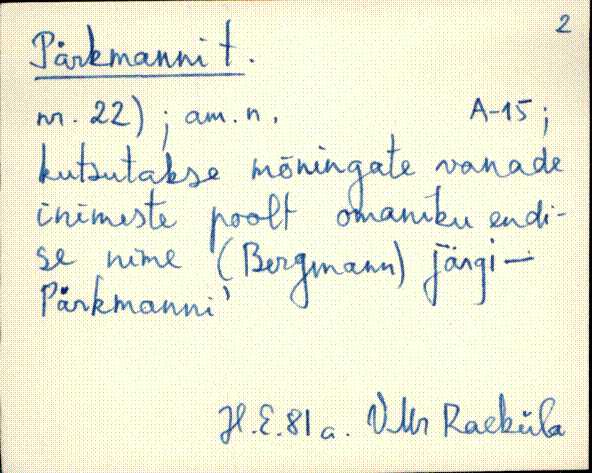 2
Pärkmanni t.
nr. 22) ; am. n. A-15 ;
kutsutakse mõningate vanade
inimeste poolt omaniku endi-
se nime (Bergmann) järgi —
Pärkmanni'
H.E. 81 a. VMr Raeküla